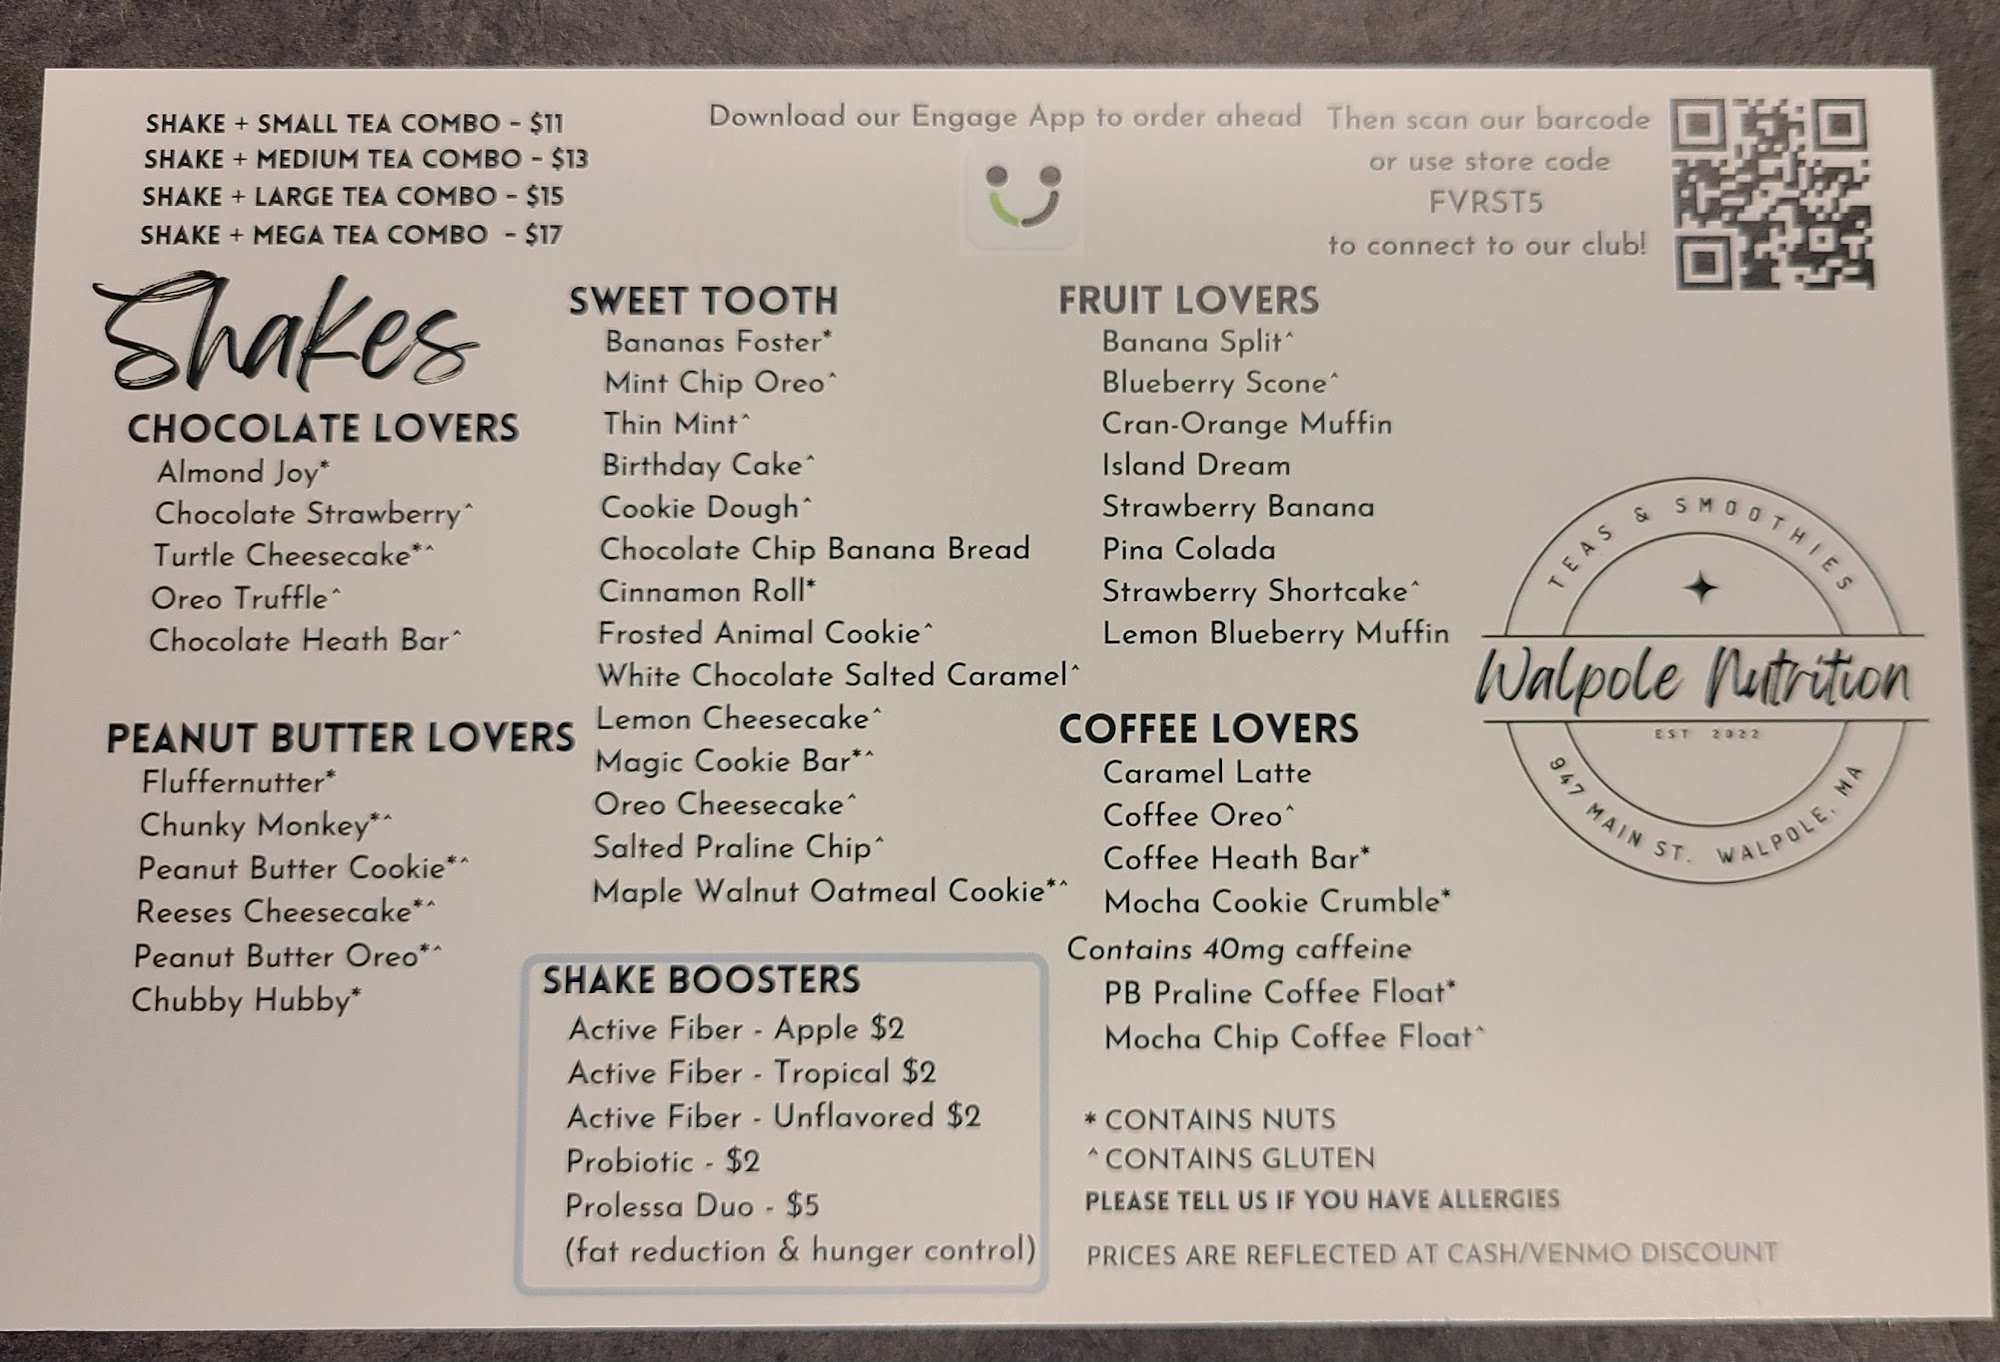 SHAKE + SMALL TEA COMBO - $11
SHAKE + MEDIUM TEA COMBO - $13
SHAKE + LARGE TEA COMBO - $15
SHAKE + MEGA TEA COMBO - $17
Download our Engage App to order ahead
Then scan our barcode
or use store code
FVRST5
to connect to our club!
Shakes
CHOCOLATE LOVERS
Almond Joy*
Chocolate Strawberry^
Turtle Cheesecake*^
Oreo Truffle^
Chocolate Heath Bar^
PEANUT BUTTER LOVERS
Fluffernutter*
Chunky Monkey*^
Peanut Butter Cookie*^
Reeses Cheesecake*^
Peanut Butter Oreo*^
Chubby Hubby*
SWEET TOOTH
Bananas Foster*
Mint Chip Oreo^
Thin Mint^
Birthday Cake^
Cookie Dough^
Chocolate Chip Banana Bread
Cinnamon Roll*
Frosted Animal Cookie^
White Chocolate Salted Caramel^
Lemon Cheesecake^
Magic Cookie Bar*^
Oreo Cheesecake^
Salted Praline Chip^
Maple Walnut Oatmeal Cookie*^
SHAKE BOOSTERS
Active Fiber - Apple $2
Active Fiber - Tropical $2
Active Fiber - Unflavored $2
Probiotic - $2
Prolessa Duo - $5
(fat reduction & hunger control)
FRUIT LOVERS
Banana Split^
Blueberry Scone^
Cran-Orange Muffin
Island Dream
Strawberry Banana
Pina Colada
Strawberry Shortcake^
Lemon Blueberry Muffin
COFFEE LOVERS
Caramel Latte
Coffee Oreo^
Coffee Heath Bar*
Mocha Cookie Crumble*
Contains 40mg caffeine
PB Praline Coffee Float*
Mocha Chip Coffee Float^
* CONTAINS NUTS
^ CONTAINS GLUTEN
PLEASE TELL US IF YOU HAVE ALLERGIES
PRICES ARE REFLECTED AT CASH/VENMO DISCOUNT
TEAS & SMOOTHIES
Walpole Nutrition
EST 2022
947 MAIN ST. WALPOLE, MA